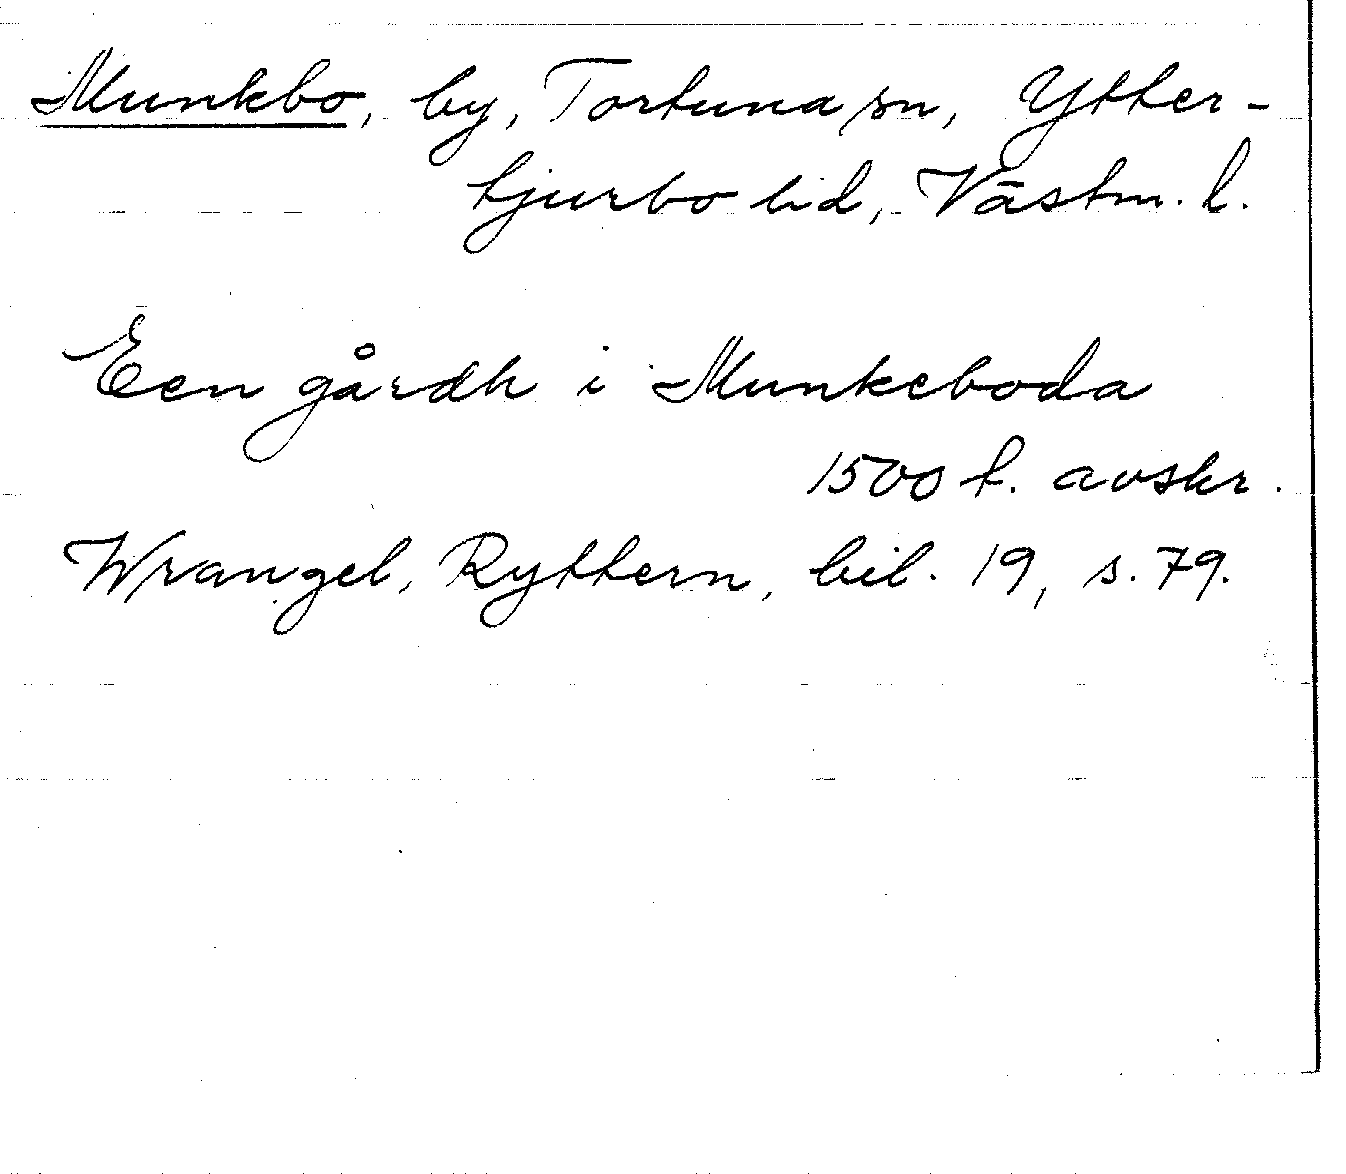 Munkbo, by, Tortuna sn, Ytter-
tjurbo hd, Västm. l.
Een gårdh i Munkeboda
1500 t. avskr.
Wrangel, Ryttern, bil. 19, s. 79.